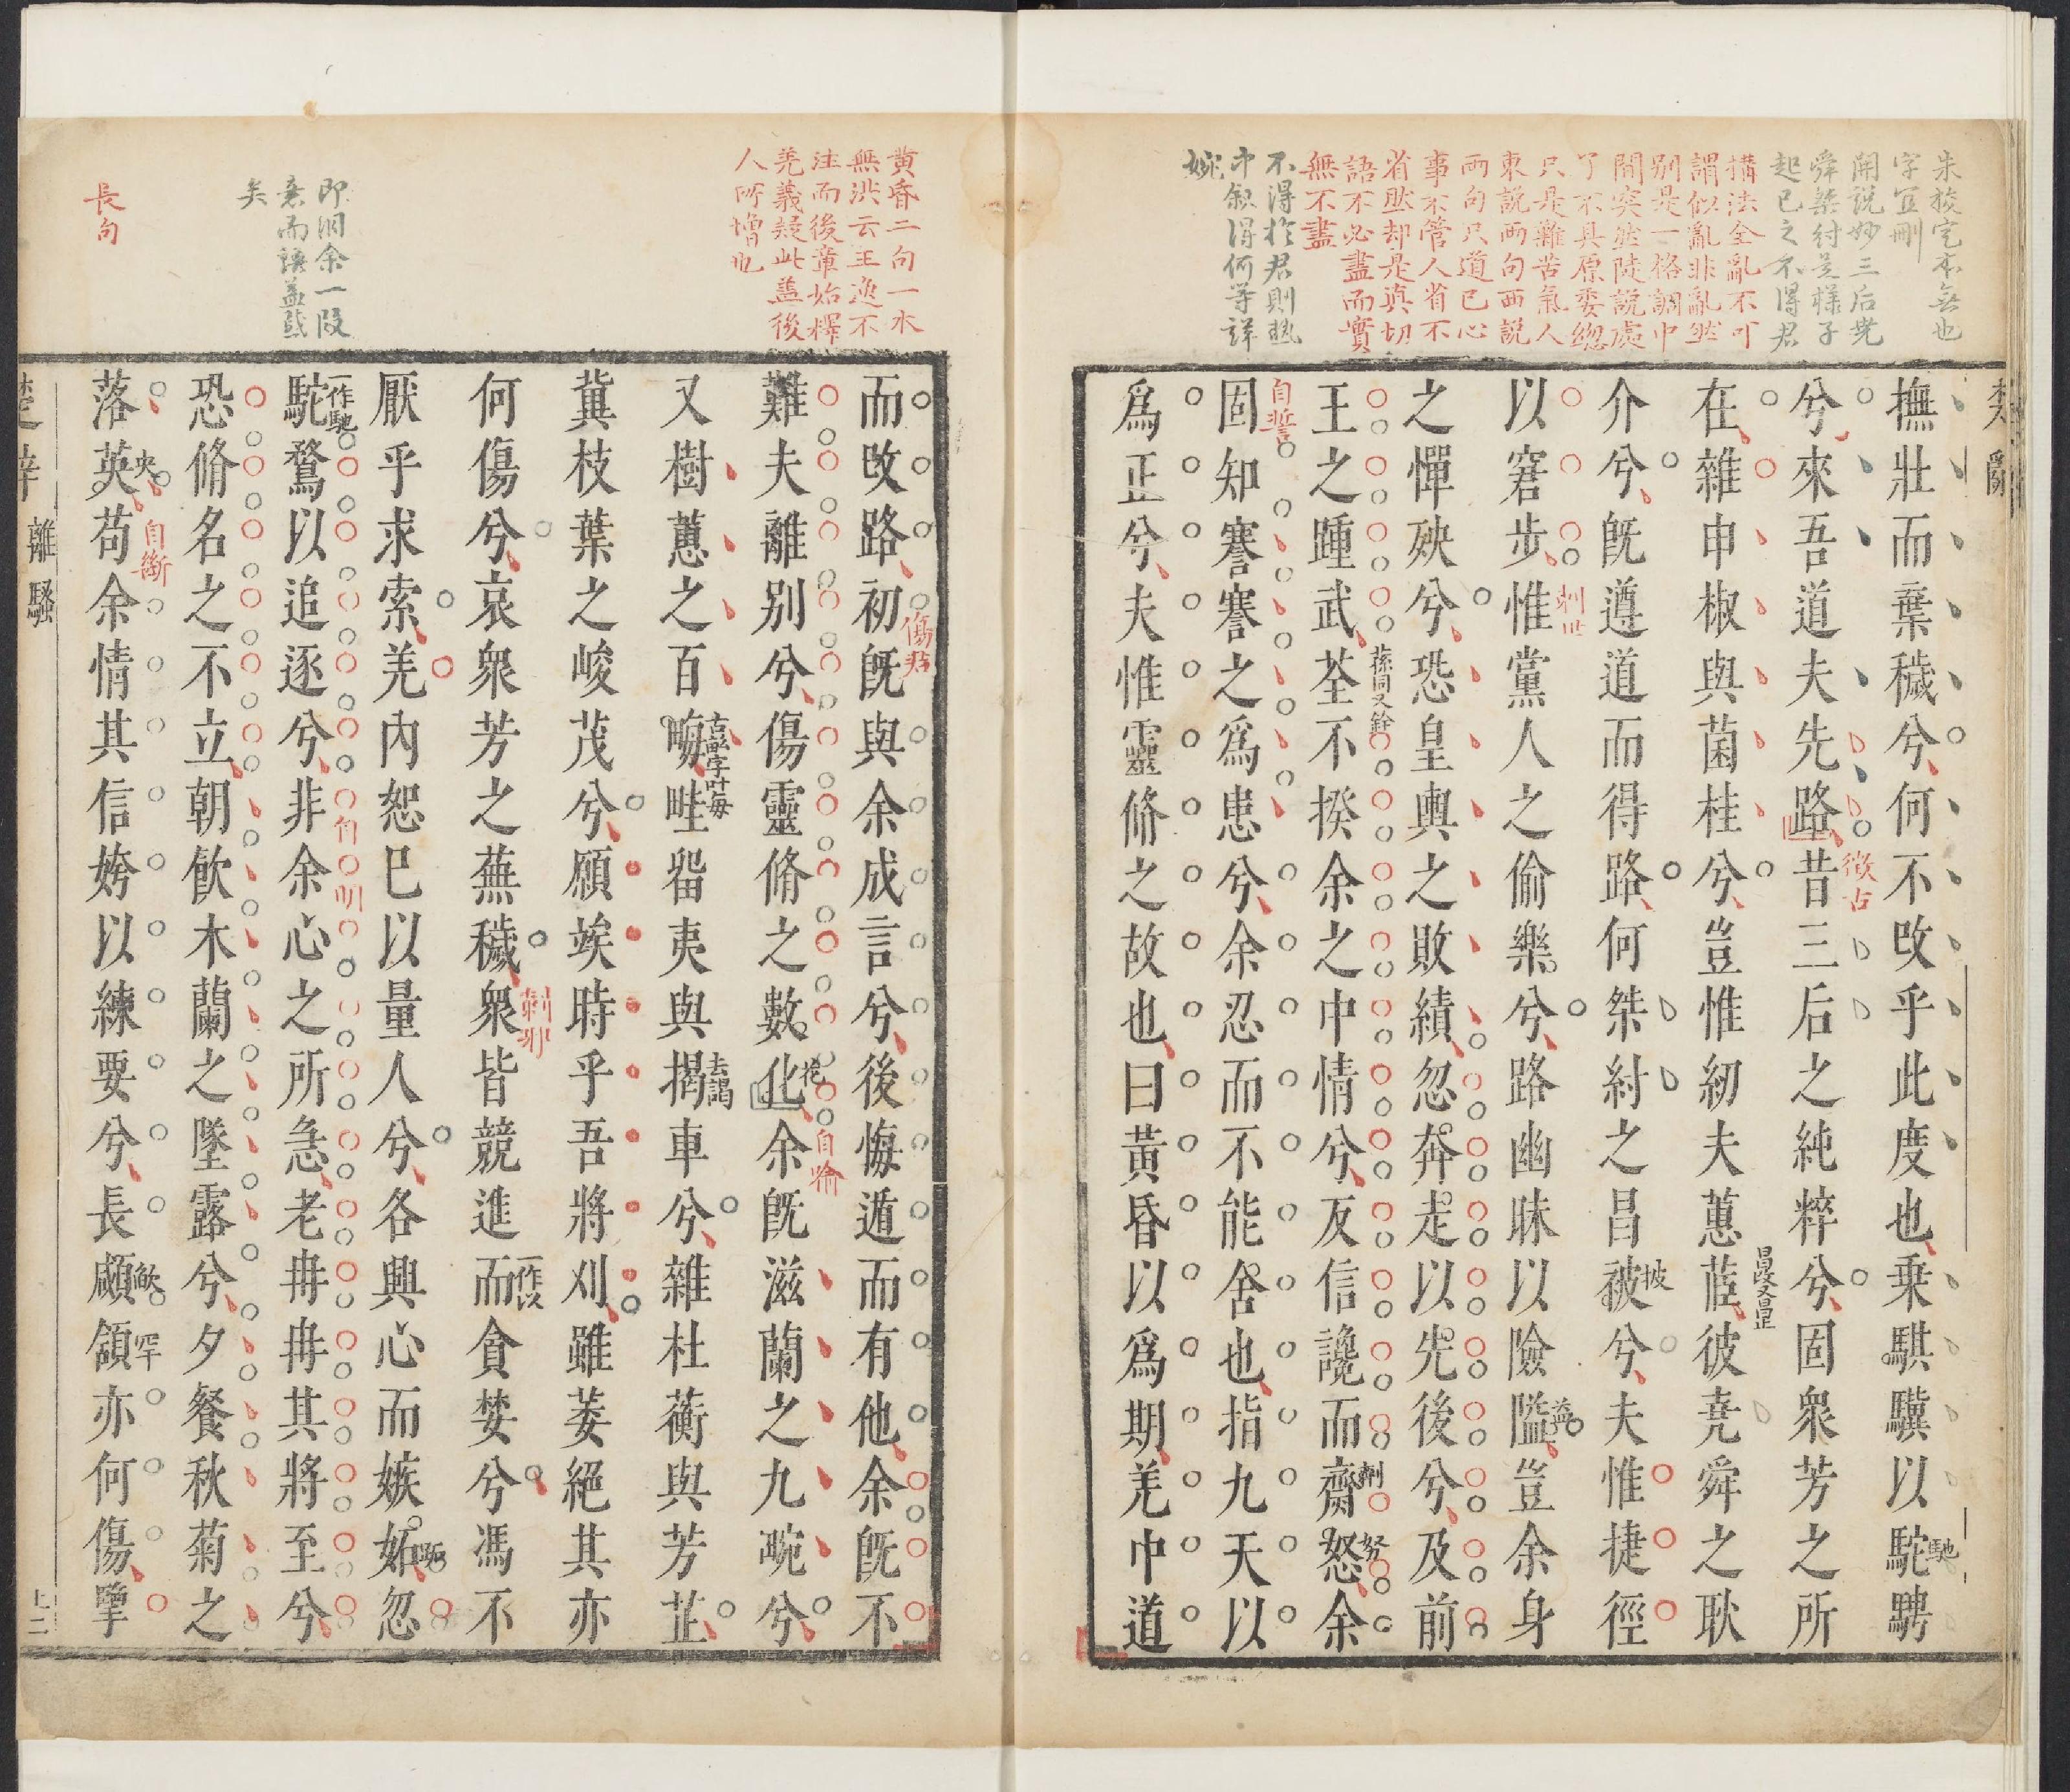 朱挍定本無也
字宜刪
開説妙三后堯
舜桀紂是様子
起已之不得君
搆法全亂不可
謂似亂非亂然
别是一格調中
間突然陡説處
了不具原委緫
只是難苦氣人
東説兩句西説
兩句只道已心
事不管人省不
省然却是真切
語不必盡而實
無不盡
不得於君則熱
中叙得何等詳
婉
楚辭
撫壯而棄穢兮何不改乎此度也乗騏驥以駝騁
馳
兮來吾道夫先路昔三后之純粹兮固衆芳之所
徴古
在雜申椒與菌桂兮豈惟紉夫蕙茝彼堯舜之耿
介兮既遵道而得路何桀紂之昌被兮夫惟捷徑
披
以窘步惟黨人之偷樂兮路幽昧以險隘豈余身
刺世
益
之憚殃兮恐皇輿之敗績忽奔走以先後兮及前
王之踵武荃不揆余之中情兮反信讒而齌怒余
蓀同又銓
劑
努
固知謇謇之爲患兮余忍而不能舍也指九天以
自誓
爲正兮夫惟靈脩之故也曰黄昏以爲期羌中道
黄昏二句一本
無洪云王逸不
注而後章始釋
羌義疑此葢後
人所增也
即洞余一段
意而語益戚
矣
長句
而改路初既與余成言兮後悔遁而有他余既不
傷君
難夫離别兮傷靈脩之數化余既滋蘭之九畹兮
花
自喻
又樹蕙之百畮畦留夷與揭車兮雜杜蘅與芳芷
古畝字叶每
去謁
冀枝葉之峻茂兮願竢時乎吾將刈雖萎絕其亦
何傷兮哀衆芳之蕪穢衆皆競進而貪婪兮馮不
刺邪
一作以
厭乎求索羌内恕已以量人兮各興心而嫉妬忽
駝騖以追逐兮非余心之所急老冉冉其將至兮
一作馳
自明
恐脩名之不立朝飲木蘭之墜露兮夕餐秋菊之
落英苟余情其信姱以練要兮長顑頷亦何傷擥
央
自斷
罕
楚辭
離騷
上二